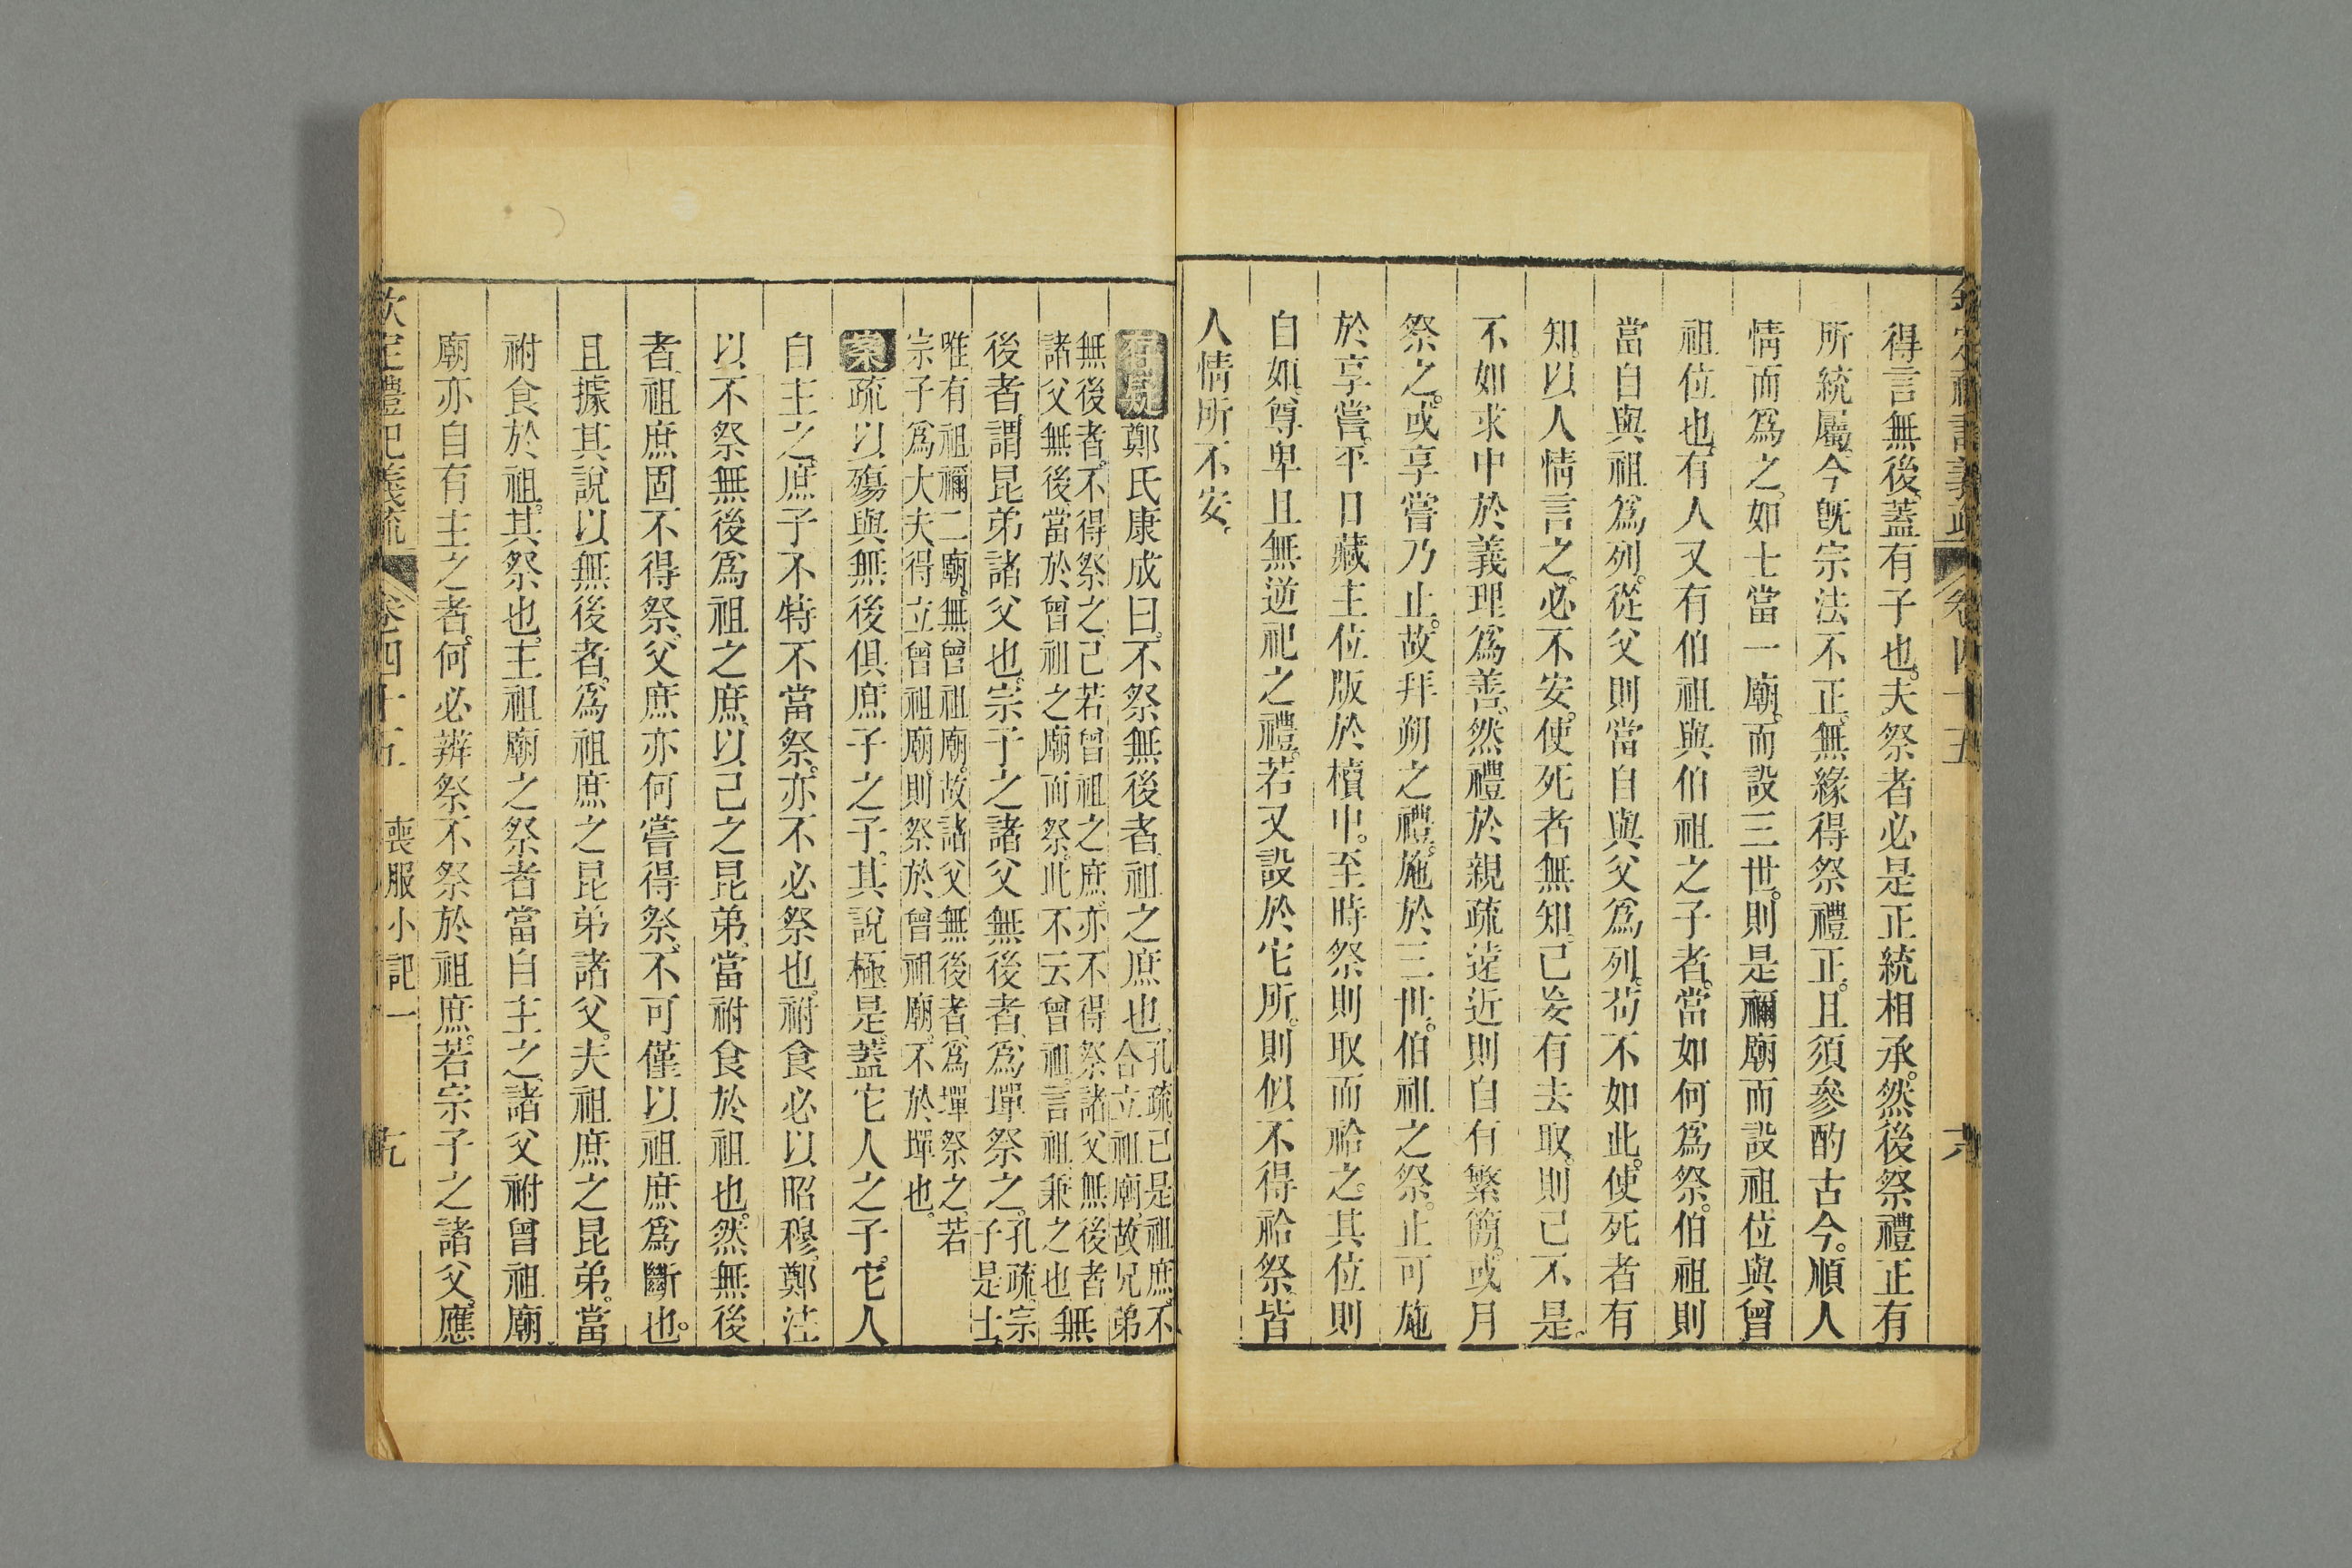 欽定禮記義疏 卷四十五
得言無後蓋有子也夫祭者必是正統相承然後祭禮正有
所統屬今旣宗法不正無緣得祭禮正且須參酌古今順人
情而爲之如士當一廟而設三世則是禰廟而設祖位與曾
祖位也有人又有伯祖與伯祖之子者當如何爲祭伯祖則
當自與祖爲列從父則當自與父爲列苟不如此使死者有
知以人情言之必不安使死者無知已妄有去取則已不是
不如求中於義理爲善然禮於親疏遠近則自有繁簡或月
祭之或享嘗乃止故拜朔之禮施於三世伯祖之祭止可施
於享嘗平日藏主位版於櫝中至時祭則取而祫之其位則
自如尊卑且無逆祀之禮若又設於它所則似不得祫祭皆
人情所不安
存疑鄭氏康成曰不祭無後者祖之庶也孔疏己是祖庶不
合立祖廟故兄弟
無後者不得祭之己若曾祖之庶亦不得祭諸父無後者
諸父無後當於曾祖之廟而祭此不云曾祖言祖兼之也無
後者謂昆弟諸父也宗子之諸父無後者爲墠祭之孔疏宗
子是士
唯有祖禰二廟無曾祖廟故諸父無後者爲墠祭之若
宗子爲大夫得立曾祖廟則祭於曾祖廟不於墠也
案疏以殤與無後俱庶子之子其說極是蓋它人之子它人
自主之庶子不特不當祭亦不必祭也祔食必以昭穆鄭注
以不祭無後爲祖之庶以己之昆弟當祔食於祖也然無後
者祖庶固不得祭父庶亦何嘗得祭不可僅以祖庶爲斷也
且據其說以無後者爲祖庶之昆弟諸父夫祖庶之昆弟當
祔食於祖其祭也主祖廟之祭者當自主之諸父祔曾祖廟
廟亦自有主之者何必辨祭不祭於祖庶若宗子之諸父應
欽定禮記義疏 卷四十五 喪服小記一